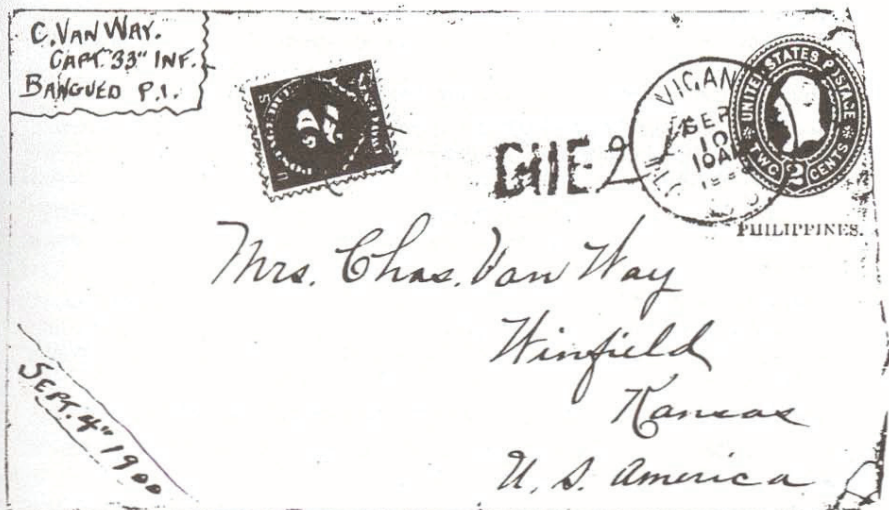 C. VAN WAY.
CAPT. 33" INF.
BANGUED P.I.
DUE 2
VIGAN
SEP
10
10A
UNITED STATES POSTAGE
TWO CENTS
2
PHILIPPINES.
Mrs. Chas. Van Way
Winfield
Kansas
U. S. America
SEPT. 4" 1900